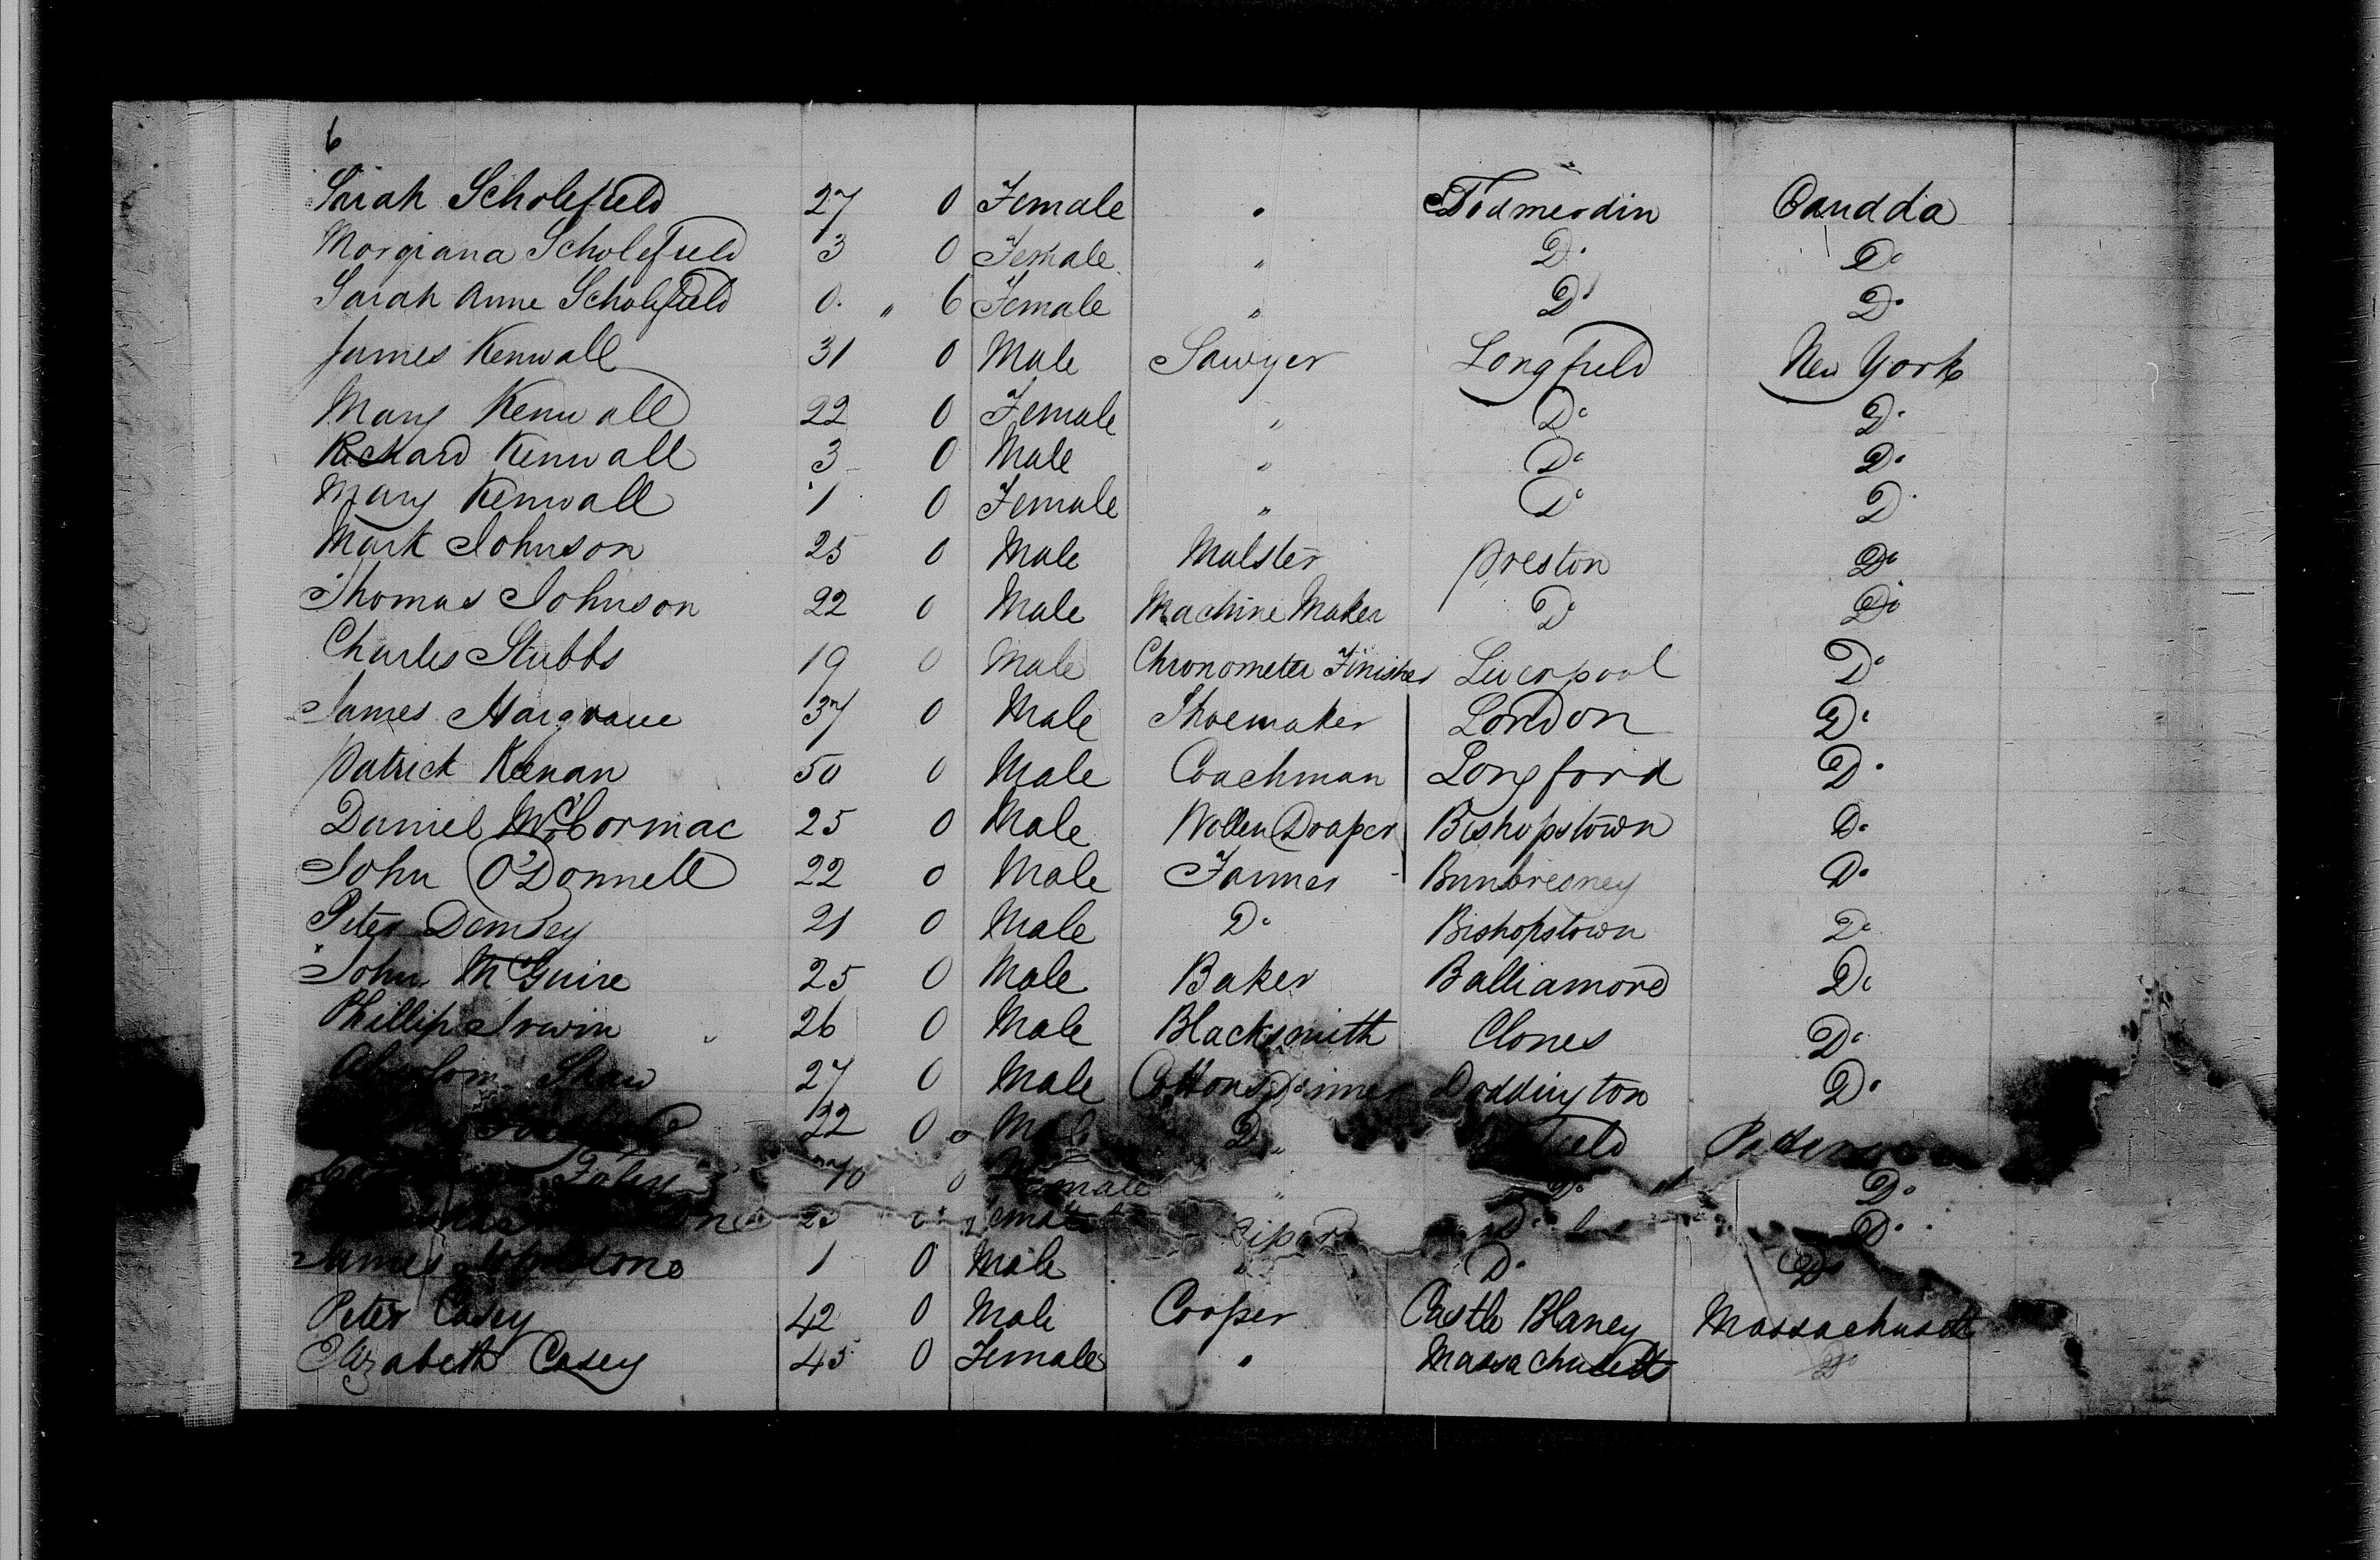 6
Sarah Scholefield 27 0 Female " Todmerdin Canadda
Morgiana Scholefield 3 0 Female " Do Do
Sarah Anne Scholefield 0 " 6 Female " Do Do
James Kenwall 31 0 Male Sawyer Longfield New York
Mary Kenwall 22 0 Female " Do Do
Richard Kenwall 3 0 Male " Do Do
Mary Kenwall 1 0 Female " Do Do
Mark Johnson 25 0 Male Malster Preston Do
Thomas Johnson 22 0 Male Machine Maker Do Do
Charles Stubbs 19 0 Male Chronometer Finisher Liverpool Do
James Hargrave 37 0 Male Shoemaker London Do
Patrick Keenan 50 0 Male Coachman Longford Do
Daniel McCormac 25 0 Male Wollen Draper Bishopstown Do
John O'Donnell 22 0 Male Farmer Do
Peter Demsey 21 0 Male Do Bishopstown Do
John McGuire 25 0 Male Baker Balliamord Do
Phillip Irwin 26 0 Male Blacksmith Clones Do
Shaw 27 0 Male Cotton Spinner Doddington Do
22 0 Male Do
0 Female " Do Do
0 Do Do
James Johnstone 1 0 Male " Do Do
Peter Casey 42 0 Male Cooper Castle Blaney Massachusetts
Elizabeth Casey 45 0 Female " Massachusetts Do